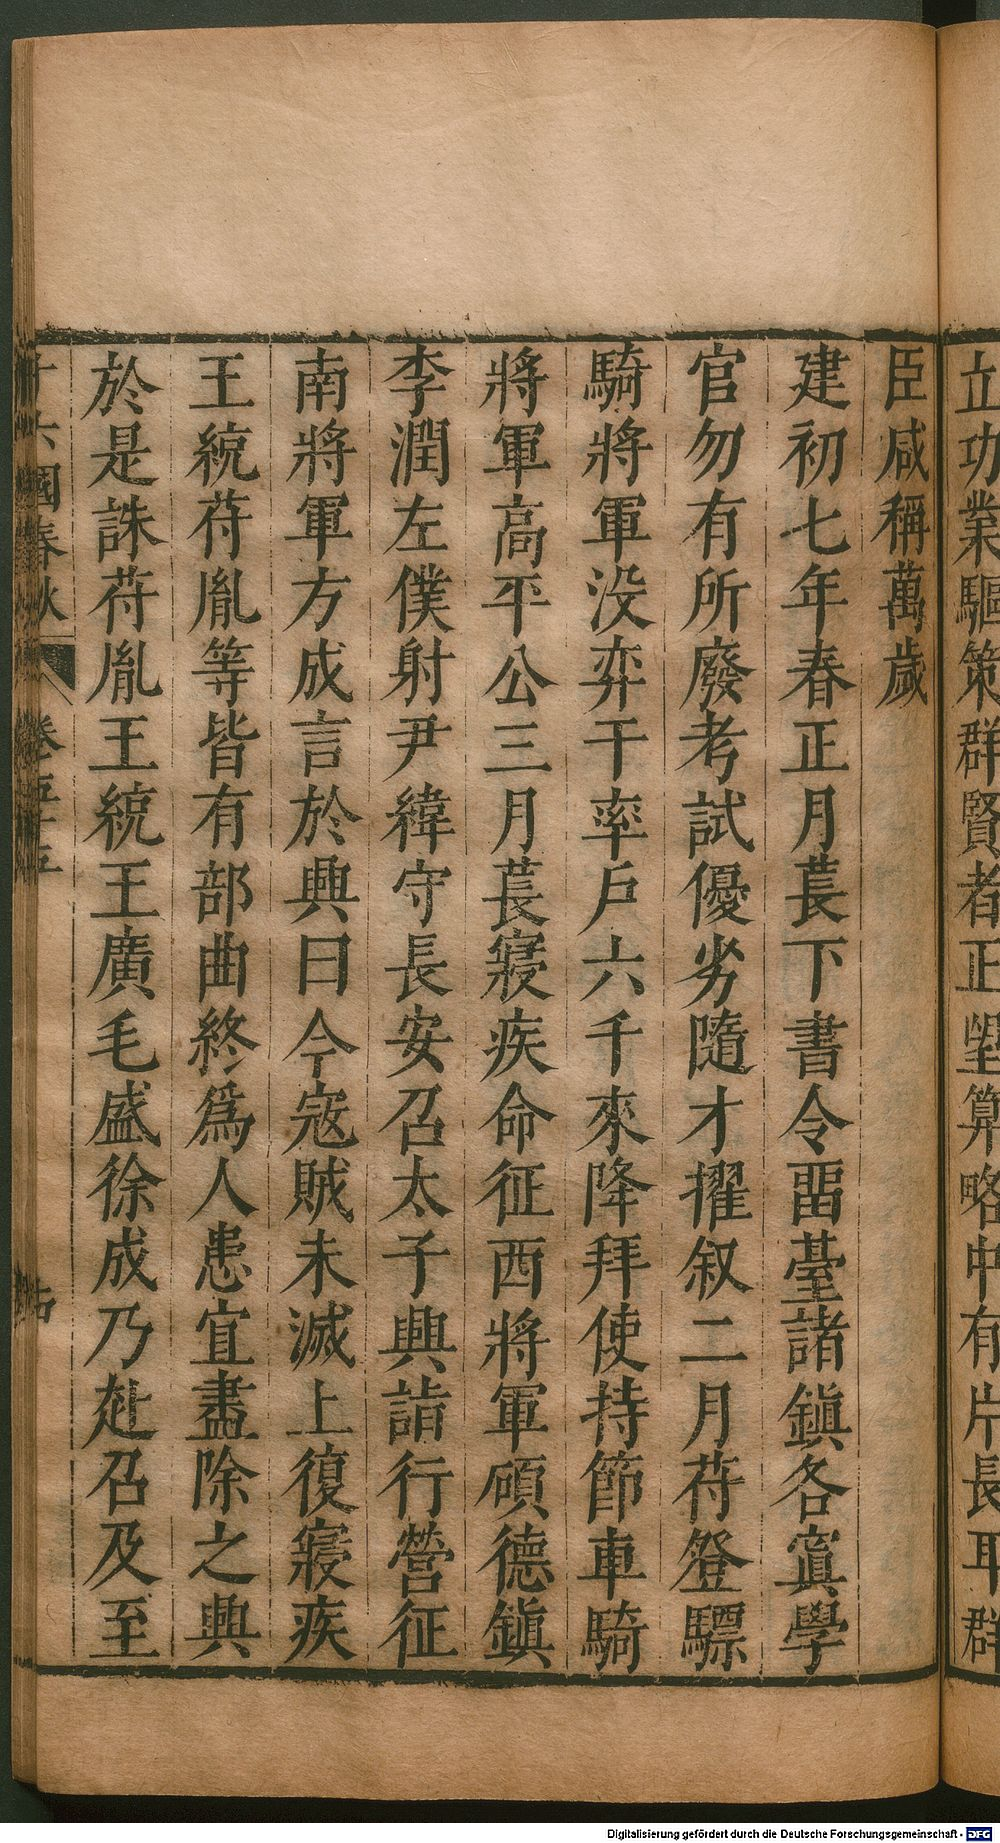 立功業驅策群賢者正望算略中有片長耳群
臣咸稱萬歲
建初七年春正月萇下書令畱臺諸鎮各寘學
官勿有所廢考試優劣隨才擢叙二月苻登驃
騎將軍没弈干率戶六千來降拜使持節車騎
將軍高平公三月萇寢疾命征西將軍碩德鎮
李潤左僕射尹緯守長安召太子興詣行營征
南將軍方成言於興曰今寇賊未滅上復寢疾
王統苻胤等皆有部曲終爲人患宜盡除之興
於是誅苻胤王統王廣毛盛徐成乃赴召及至
十六國春秋 卷五十五
Digitalisierung gefördert durch die Deutsche Forschungsgemeinschaft - DFG